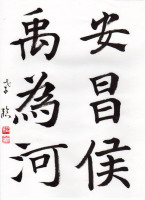 安昌侯
禹為河